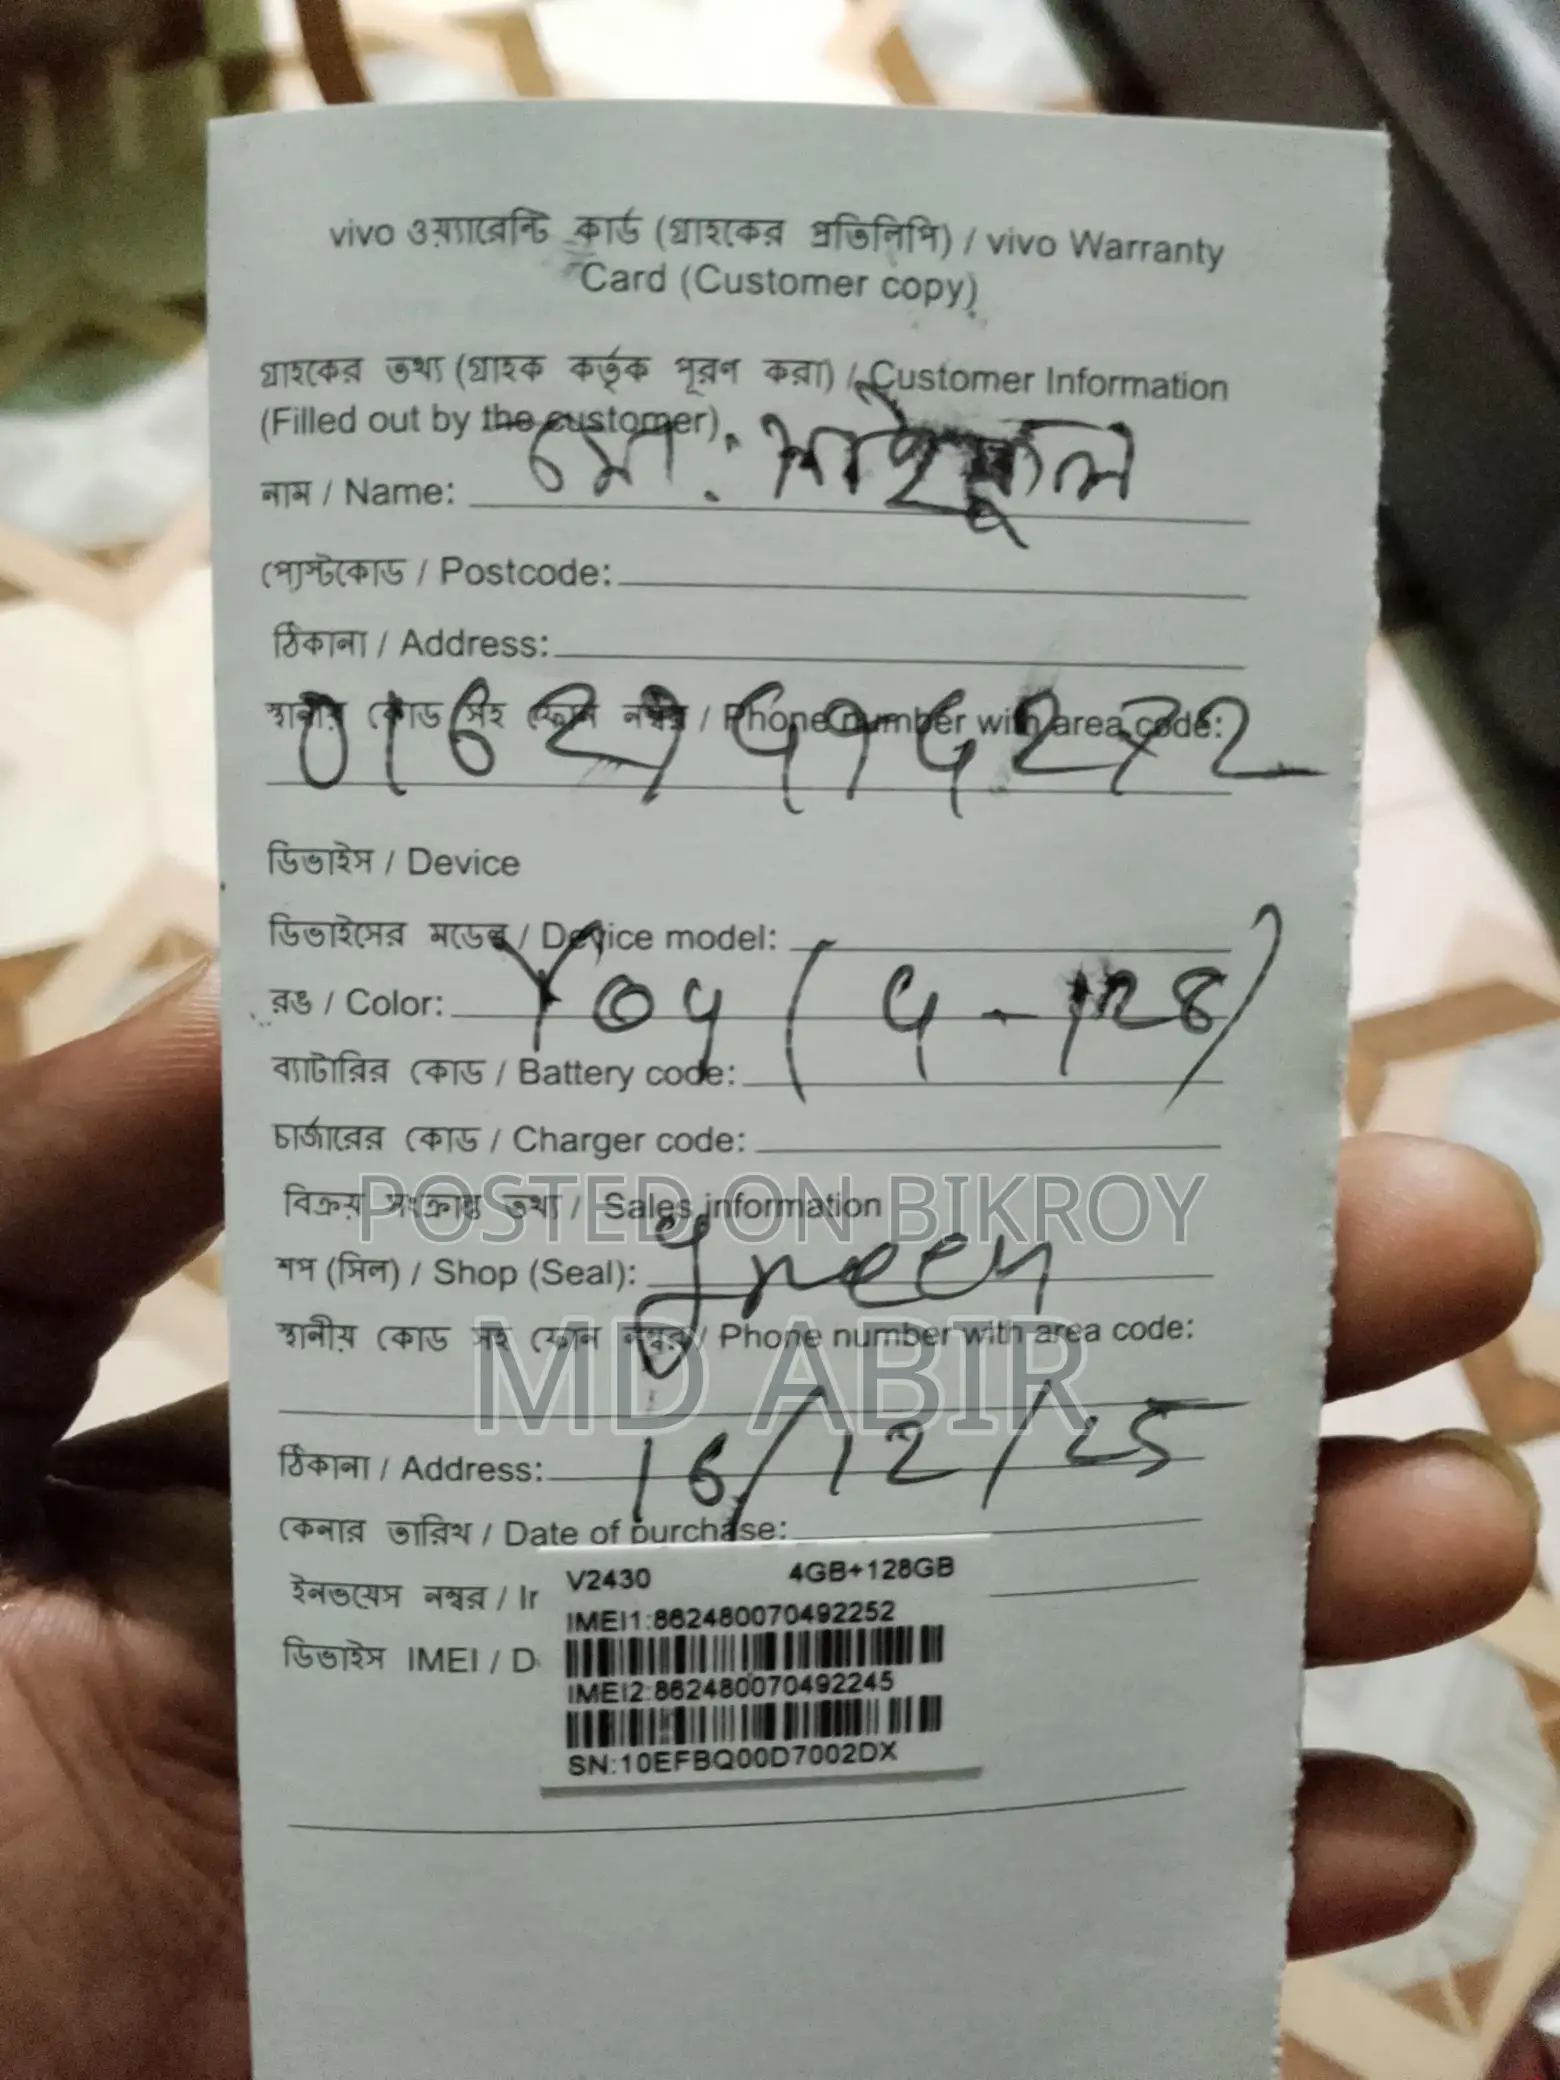 vivo ওয়্যারেন্টি কার্ড (গ্রাহকের প্রতিলিপি) / vivo Warranty
Card (Customer copy)
গ্রাহকের তথ্য (গ্রাহক কর্তৃক পূরণ করা) / Customer Information
(Filled out by the customer)
নাম / Name: মো:
পোস্টকোড / Postcode:
ঠিকানা / Address:
স্থানীয় কোড সহ ফোন নম্বর / Phone number with area code:
ডিভাইস / Device
ডিভাইসের মডেল / Device model:
Y04 (4 - 128)
রঙ / Color:
ব্যাটারির কোড / Battery code:
চার্জারের কোড / Charger code:
POSTED ON BIKROY
বিক্রয় সংক্রান্ত তথ্য / Sales information
শপ (সিল) / Shop (Seal): green
স্থানীয় কোড সহ ফোন নম্বর / Phone number with area code:
MD ABIR
ঠিকানা / Address: 16/12/25
কেনার তারিখ / Date of purchase:
ইনভয়েস নম্বর / In
V2430 4GB+128GB
IMEI1:862480070492252
ডিভাইস IMEI / D
IMEI2:862480070492245
SN:10EFBQ00D7002DX